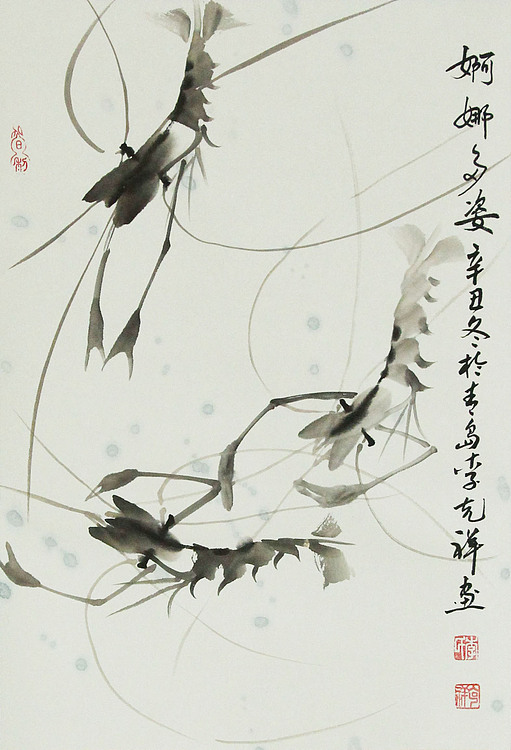 婀娜多姿 辛丑冬於青岛李克祥画